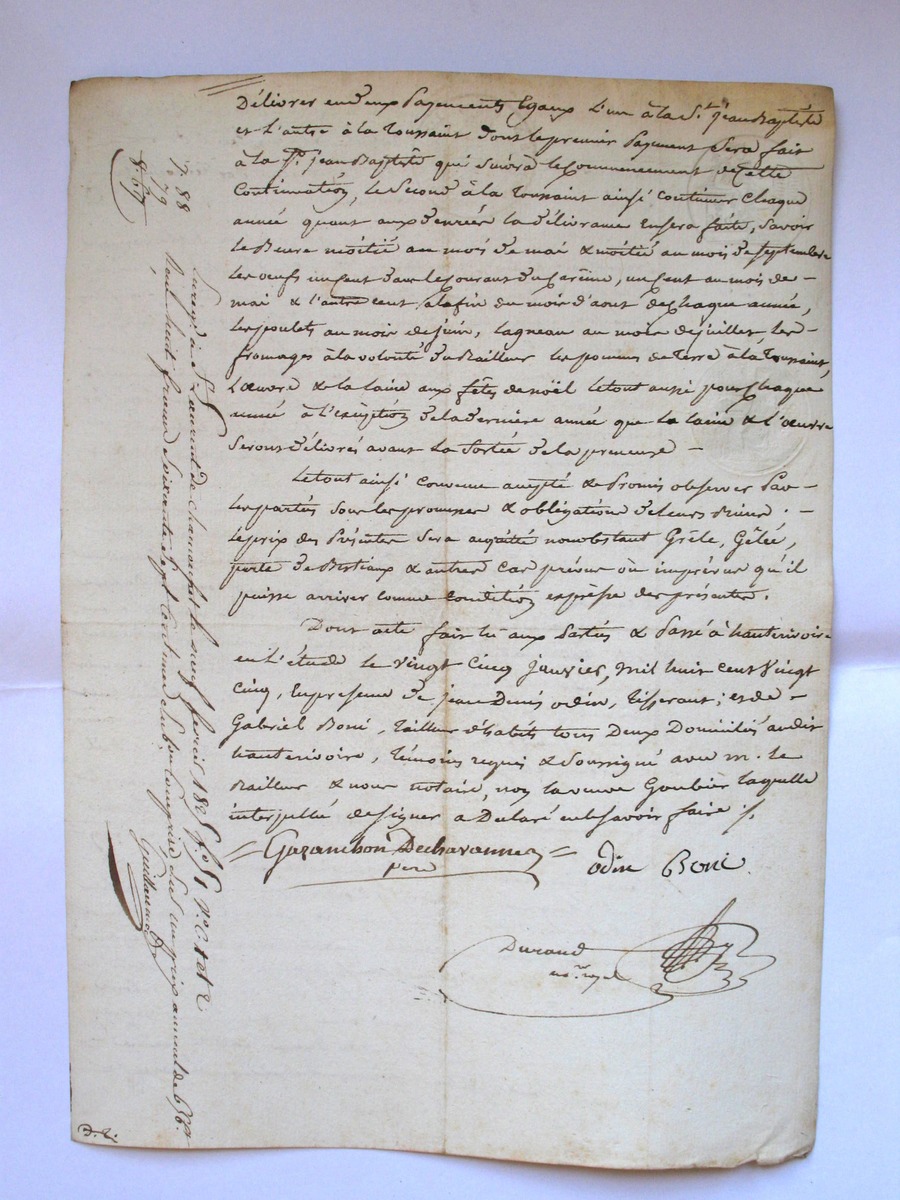 Délivrer en deux payements Egaux L'un à la St. jean Baptiste
et l'autre à la Toussaint dont le premier payement sera fait
à la St. jean Baptiste qui suivra le Commencement de cette
Continuation, le Second à la Toussaint ainsi continuer Chaque
année quant aux denrées la délivrance En sera faite, Savoir
le Beure moitié au mois de mai & moitié au mois de septembre
les oeufs un Cent dans le Courant du Carême, un Cent au mois de
mai & l'autre Cent à la fin du mois d'aout de chaque année,
les poulets au mois de juin, lagneau au mois de juillet, les
fromages à la volonté du Bailleur les pommes de Terre à la Toussaint,
L'oeuvre & de la laine aux fêtes de noël le tout aussi pour Chaque
année à l'exéption de la dernière année que la laine & l'oeuvre
Seront délivrés avant la Sortée de la preneuse –
Le tout ainsi Convenu accepté & Promis observer Par
les partés sous les promesses & obligation de leurs Biens. –
le prix des Présentes Sera acquitté nonobstant Grêle, Gélée,
perte de Bestiaux & autres Cas prévus ou imprévus qu'il
puisse arriver comme Condition expresse des présentes.
Dont acte fait lu aux Partés & Passé à hauterivoire
en l'étude le vingt Cinq janvier, mil huit Cent Vingt
Cinq, En presence de jean Denis odin, Tisserant; et de –
Gabriel Boni, Tailleur d'habits tous Deux Domiciliés audit
hauterivoire, témoins requis & Soussigné avec m. le
Bailleur & nous notaire, non la veuve Goubier laquelle
interpellé de signer a Déclaré ne le Savoir faire ./.
Garanchon Dechavannes
père
odin Boni
Durand
no.re royal
N.o 88
79
8.67
Enreg.é à St. Laurent de chamousset le neuf fevrier 1825 f.o 55 v.o C. 1 et 2
Reçu huit francs Soixante Sept Centimes
Guillaume